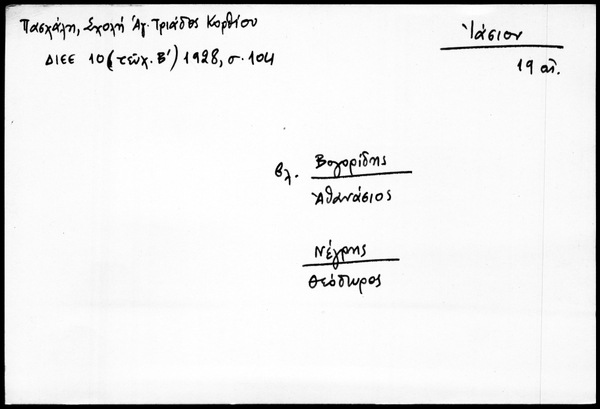 Πασχάλη, Σχολή Ἁγ. Τριάδος Κορθίου
ΔΙΕΕ 10 (τεῦχ. Β') 1928, σ. 104
Ἰάσιον
19 αἰ.
βλ. Βογορίδης
Ἀθανάσιος
Νέγρης
Θεόδωρος